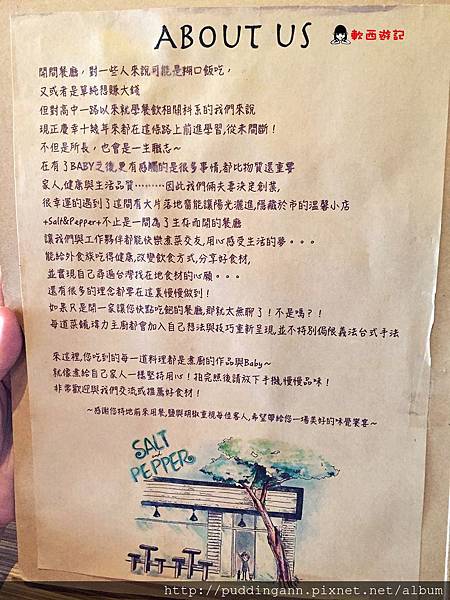 ABOUT US
軟西遊記
開間餐廳，對一些人來說可能是糊口飯吃，
又或者是單純想賺大錢
但對高中一路以來就學餐飲相關科系的我們來說
現正慶幸十幾年來都在這條路上前進學習，從未間斷！
不但是所長，也會是一生職志~
在有了BABY之後，更有感觸的是很多事情，都比物質還重要
家人，健康與生活品質………因此我們倆夫妻決定創業，
很幸運的遇到了這間有大片落地窗能讓陽光灑進，隱藏於市的溫馨小店
+Salt&Pepper+不止是一間為了生存而開的餐廳
讓我們與工作夥伴都能快樂煮菜交友，用心感受生活的夢。。。
能給外食族吃得健康，改變飲食方式，分享好食材，
並實現自己尋遍台灣找在地食材的心願。。。
還有很多的理念都要在這裏慢慢做到！
如果只是開一家讓您快點吃飽的餐廳，那就太無聊了！不是嗎？！
每道菜餚瑋力主廚都會加入自己想法與技巧重新呈現，並不特別侷限義法台式手法
來這裡，您吃到的每一道料理都是煮廚的作品與Baby~
就像煮給自己家人一樣堅持用心！拍完照後請放下手機，慢慢品味！
非常歡迎與我們交流或推薦好食材！
~感謝您特地前來用餐，鹽與胡椒重視每位客人，希望帶給您一場美好的味覺饗宴~
SALT
PEPPER
http://puddingann.pixnet.net/album